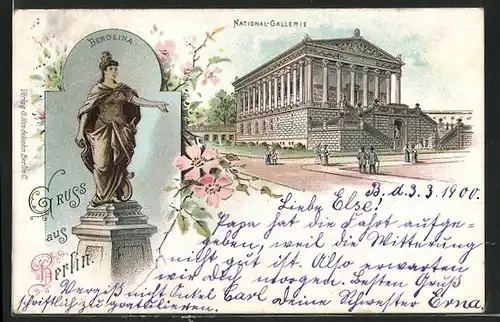 BEROLINA
NATIONAL-GALLERIE
GRUSS
aus
Berlin.
B. d. 3. 3. 1900.
Liebe Else!
Papa hat die Fahrt aufge-
geben, weil die Witterung
nicht gut ist. Also erwarten
wir dich morgen. Besten Gruß
Deine Schwester Erna.
Vergiß nicht Onkel Carl
schriftlich zu gratulieren.